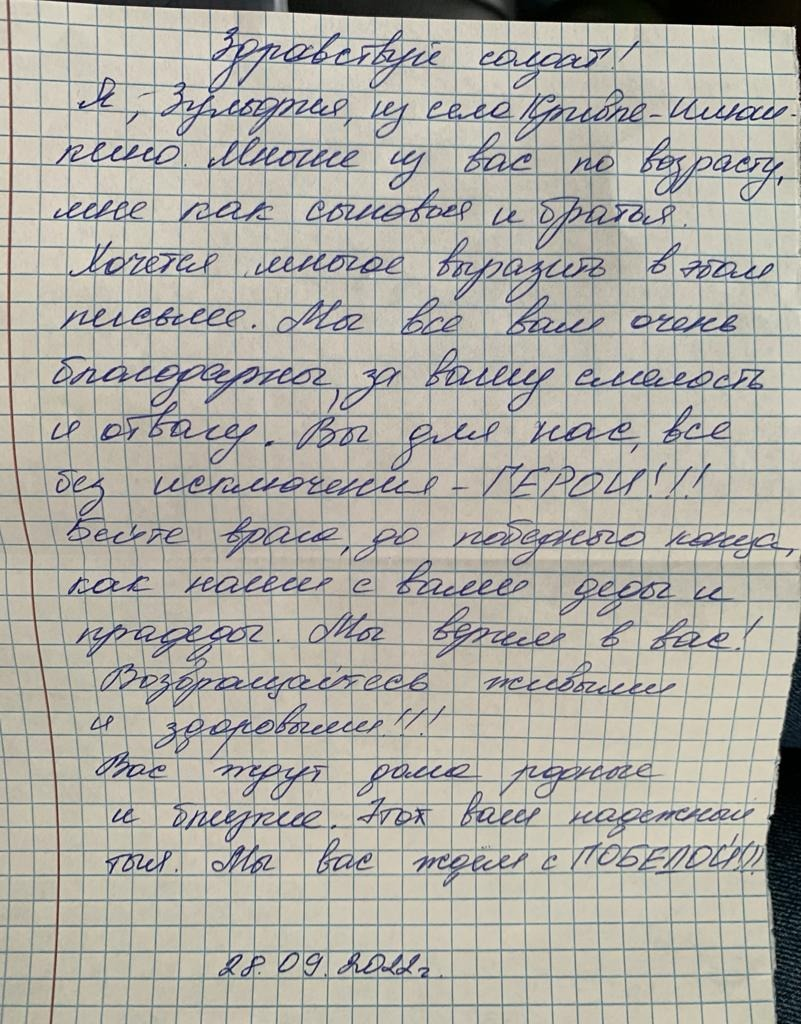 Здравствуй солдат!
Я, Зульфия, из села Кривле-Илюш-
кино. Многие из вас по возрасту,
мне как сыновья и братья.
Хочется многое выразить в этом
письме. Мы все вам очень
благодарны, за вашу смелость
и отвагу. Вы для нас, все
без исключения - ГЕРОИ!!!
Бейте врага, до победного конца,
как наши с вами деды и
прадеды. Мы верим в вас!
Возвращайтесь живыми
и здоровыми!!!
Вас ждут дома родные
и близкие. Этот ваш надежный
тыл. Мы вас ждём с ПОБЕДОЙ!!!
28.09.2022г.